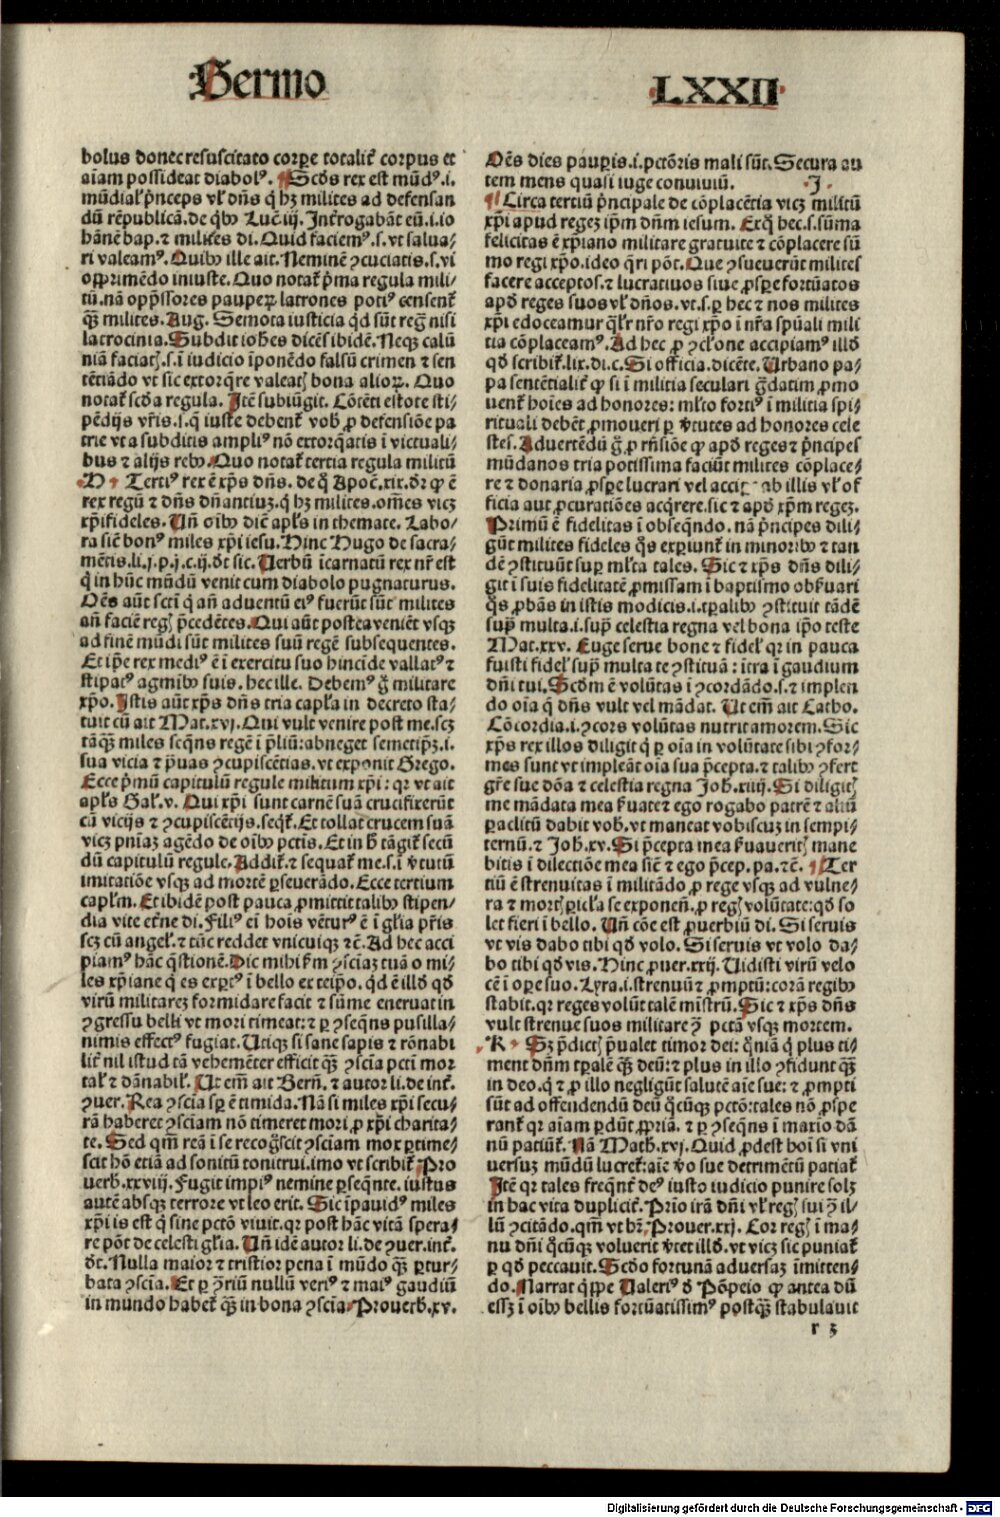 Sermo
LXXII
bolus donec resuscitato corꝑe totalit̄ corpus et
aīam possideat diabolꝰ. Scd̄s rex est mūdꝰ.i.
mūdial̓ p̄nceps vl̓ dn̄s q̄ hꝫ milites ad defensan
dū rēpublicā.de qͥbꝰ Luc̄ iij. Int̓rogabāt eū.i.io
hānē bap.⁊ milites di. Quid faciemꝰ.s.vt salua⸗
ri valeamꝰ. Quibꝰ ille ait. Neminē ꝯcuciatis.s.vi
opprimēdo iniuste. Quo notat̄ p̄ma regula mili⸗
tū.nā opp̄ssores pauperꝝ latrones potiꝰ censent̄
qꝫ̄ milites. Aug. Semota iusticia qd̓ sūt reḡ nisi
latrocinia. Subdit ioh̄es dicēs ibidē. Neqꝫ calū
niā faciatꝭ.s.ī iudicio īponēdo falsū crimen ⁊ sen
tētiādo vt sic extorq̄re valeatꝭ bona alioꝝ. Quo
notat̄ scd̓a regula. Itē subiūgit. Cōtēti estote sti⸗
pēdijs vr̄is.i.q̄ iuste debent̄ vob̓ ꝓ defensiōe pa
trie vt a subditis ampliꝰ nō extorq̄atis ī victuali⸗
bus ⁊ alijs rebꝰ. Quo notat̄ tertia regula militū
H Tertiꝰ rex ē xp̄s dn̄s. de q̄ Apoc̄.xix.dr̄ ꝙ ē
rex regū ⁊ dn̄s dn̄antiuꝫ.q̄ hꝫ milites.om̄es vicꝫ
xp̄ifideles. Vn̄ oībꝰ dic̄ apl̓s in themate. Labo⸗
ra sic̄ bonꝰ miles xp̄i iesu. Hinc Hugo de sacra⸗
mētis.li.j.p.j.c.ij.dt̓ sic. Verbū īcarnatū rex nr̄ est
q̄ in hūc mūdū venit cum diabolo pugnaturus.
Oēs aūt scti̅ q̄ an̄ aduentū eiꝰ fuerūt sūt milites
an̄ faciē regꝭ p̄cedētes. Qui aūt postea veniēt vsqꝫ
ad finē mūdi sūt milites suū regē subsequentes.
Et ip̄e rex mediꝰ ē ī exercitu suo hincīde vallatꝰ ⁊
stipatꝰ agmībꝰ suis. hec ille. Debemꝰ g̓ militare
xp̄o. Istis aūt xp̄s dn̄s tria capl̓a in decreto sta⸗
tuit cū ait Mat.xvj. Qui vult venire post me.scꝫ
tāqꝫ̄ miles seq̄ns regē ī p̄liū:abneget semetip̄ꝫ.i.
sua vicia ⁊ p̄uas ꝯcupiscētias. vt exponit Grego.
Ecce p̄mū capitulū regule militum xp̄i: qr̄ vt ait
apl̓s Gal̓.v. Qui xp̄i sunt carnē suā crucifixerūt
cū vicijs ⁊ ꝯcupiscētijs.seqt̄. Et tollat crucem suā
vicꝫ pn̄iaꝫ agēdo de oībꝰ pctis. Et in h̓ tāgit̄ secū
dū capitulū regule. Addit̄.⁊ sequat̄ me.s.ī v̓tutū
imitatiōe vsqꝫ ad mortē ꝑseuerādo. Ecce tertium
capl̓m. Et ibidē post pauca ꝓmittit talibꝰ stipen⸗
dia vite et̓ne di. Filiꝰ ei̅ hoīs vētꝰrꝰ ē ī gl̓ia pr̄is
scꝫ cū angel̓.⁊ tūc reddet vnicuiqꝫ ⁊c̄. Ad hec acci
piamꝰ hāc q̄stionē. Dic mihi fm̄ ꝯsciaꝫ tuā o mi⸗
les xp̄iane q̄ es expt̓ꝰ ī bello ex tēp̄o. qd̓ ē illd̓ qd̓
virū militareꝫ formidare facit ⁊ sūme eneruat in
ꝯgressu belli vt mori timeat:⁊ ꝑ ꝯseq̄ns pusilla⸗
nimis effectꝰ fugiat. Vtiqꝫ si sane sapis ⁊ rōnabi
lit̄ nil istud tā vehemēter efficit qꝫ̄ ꝯscīa pcti̅ mor
tal̓ ⁊ dānabil̓. Vt em̄ ait Bern̄.⁊ autor li.de int̓.
ꝯuer. Rea ꝯscīa sꝑ ē timida. Nā si miles xp̄i secu⸗
rā haberet ꝯsciam nō timeret mori ꝓ xp̄i charita⸗
te. Sed qm̄ reā ī se recog̓scit ꝯsciam mox ꝑtime⸗
scit hō etiā ad sonitū tonitrui.imo vt scribit̄ Pro
uerb.xxviij. Fugit impiꝰ nemine ꝑseq̄nte. iustus
autē absqꝫ terrore vt leo erit. Sic īpauidꝰ miles
xp̄i is est q̄ sine pctō viuit.qr̄ post hāc vitā spera⸗
re pōt de celesti gl̓ia. Vn̄ idē autor li.de ꝯuer.int̓.
dt̓. Nulla maior ⁊ tristior pena ī mūdo qꝫ̄ ꝑtur⸗
bata ꝯscīa. Et ꝑ ꝯ̄riū nullū veriꝰ ⁊ maiꝰ gaudiū
in mundo habet̄ qꝫ̄ in bona ꝯscīa. Prouerb.xv.
Oēs dies paupis.i.pctōris mali sūt. Secura au
tem mens quasi iuge conuiuiū. J
Circa tertiū p̄ncipale de cōplacētia vicꝫ militū
xp̄i apud regeꝫ ip̄m dn̄m iesum. Exq̄ hec.s.sūma
felicitas ē xp̄iano militare gratuite ⁊ cōplacere sū
mo regi xp̄o.ideo q̄ri pōt. Que ꝯsueuerūt milites
facere acceptos.⁊ lucratiuos siue ꝓsꝑe fortūatos
apd̓ reges suos vl̓ dn̄os.vt.s.ꝑ hec ⁊ nos milites
xp̄i edoceamur ql̓r nr̄o regi xp̄o ī nr̄a spūali mili
tia cōplaceamꝰ. Ad hec ꝓ ꝯcl̓one accipiamꝰ illd̓
qd̓ scribit̄.lix.di.c. Si officia.dicēte. Urbano pa⸗
pa sentētialit̄ ꝙ si ī militia seculari g̓datim ꝓmo
uent̄ hoīes ad honores: ml̓to fortiꝰ ī militia spi⸗
rituali debēt ꝓmoueri ꝑ v̓tutes ad honores cele
stes. Aduertēdū g̓ ꝓ rn̄siōe ꝙ apd̓ reges ⁊ p̄ncipes
mūdanos tria potissima faciūt milites cōplace⸗
re ⁊ donaria ꝓsꝑe lucrari vel acci ab illis vl̓ of
ficia aut ꝓcuratiōes acq̄rere.sic ⁊ apd̓ xp̄m regeꝫ.
Primū ē fidelitas ī obseq̄ndo. nā p̄ncipes dili⸗
gūt milites fideles q̄s expiunt̄ in minoribꝰ ⁊ tan
dē ꝯstituūt sup ml̓ta tales. Sic ⁊ xp̄s dn̄s dili⸗
git ī suis fidelitatē ꝓmissam ī baptismo obs̓uari
q̄s ꝓbās in istis modicis.i.tꝑalibꝰ ꝯstituit tādē
sup̄ multa.i.sup̄ celestia regna vel bona ip̄o teste
Mat.xxv. Euge serue bone ⁊ fidel̓ qr̄ in pauca
fuisti fidel̓ sup̄ multa te ꝯstituā: itra ī gaudium
dn̄i tui. Scd̓m ē volūtas ī ꝯcordādo.s.⁊ implen
do oīa q̄ dn̄s vult vel mādat. Ut em̄ ait Catho.
Cōcordia.i.ꝯcors volūtas nutrit amorem. Sic
xp̄s rex illos diligit q̄ ꝑ oīa in volūtate sibi ꝯfor⸗
mes sunt vt impleāt oīa sua p̄cepta.⁊ talibꝰ ꝯfert
gr̄e sue dōa ⁊ celestia regna Joh̓.xiiij. Si diligitꝭ
me mādata mea s̓uate ⁊ ego rogabo patrē ⁊ aliū
ꝑaclitū dabit vob̓. vt maneat vobiscuꝫ in sempi⸗
ternū.⁊ Joh̓.xv. Si p̄cepta mea s̓uaueritꝭ mane
bitis ī dilectiōe mea sic̄ ⁊ ego p̄cep.pa.⁊c̄. Ter
tiū ē strenuitas ī militādo ꝓ rege vsqꝫ ad vulne⸗
ra ⁊ mortꝭ ꝑicl̓a se exponen̄. ꝓ regꝭ volūtate:qd̓ so
let fieri ī bello. Un̄ cōe est ꝓuerbiū di. Si seruis
vt vis dabo tibi qd̓ volo. Si seruis vt volo da⸗
bo tibi qd̓ vis. Hinc ꝓuer.xxij. Uidisti virū velo
cē ī oꝑe suo. Lyra.i.strenuū ⁊ ꝓmptū:corā regibꝰ
stabit.qr̄ reges volūt talē mīstrū. Sic ⁊ xp̄s dn̄s
vult strenue suos militare ꝯ̄ pctā vsqꝫ mortem.
K Sꝫ p̄dictꝭ p̄ualet timor dei: q̄niā q̄ plus ti⸗
ment dn̄m tꝑalē qꝫ̄ deū:⁊ plus in illo ꝯfidunt qꝫ̄
in deo.q̄ ⁊ ꝓ illo negligūt salutē aīe sue:⁊ ꝓmpti
sūt ad offendendū deū q̄cūqꝫ pctō:tales nō ꝓspe
rant̄ qr̄ aīam ꝑdūt ꝓpriā.⁊ ꝑ ꝯseq̄ns ī maxīo dā
nū patiūt̄. Nā Math.xvj. Quid ꝓdest hoī si vni
uersuꝫ mūdū lucret̄:aīe v̓o sue detrimētū patiat̄
Itē qr̄ tales freq̄nt̄ deꝰ iusto iudicio punire solꝫ
in hac vita duplicit̄. Prīo irā dn̄i vl̓ regꝭ sui ꝯ̄ il⸗
lū ꝯcitādo.qm̄ vt hr̄. Prouer.xxj. Cor regꝭ ī ma⸗
nu dn̄i q̄cūqꝫ voluerit v̓tet illd̓.vt vicꝫ sic puniat̄
ꝑ qd̓ peccauit. Scd̓o fortunā aduersaꝫ īmitten⸗
do. Narrat q̄ippe Ualeriꝰ d̓ Pōpeio ꝙ antea dū
essꝫ ī oībꝰ bellis fortūatissimꝰ postqꝫ̄ stabulauit
r 3
Digitalisierung gefördert durch die Deutsche Forschungsgemeinschaft - DFG